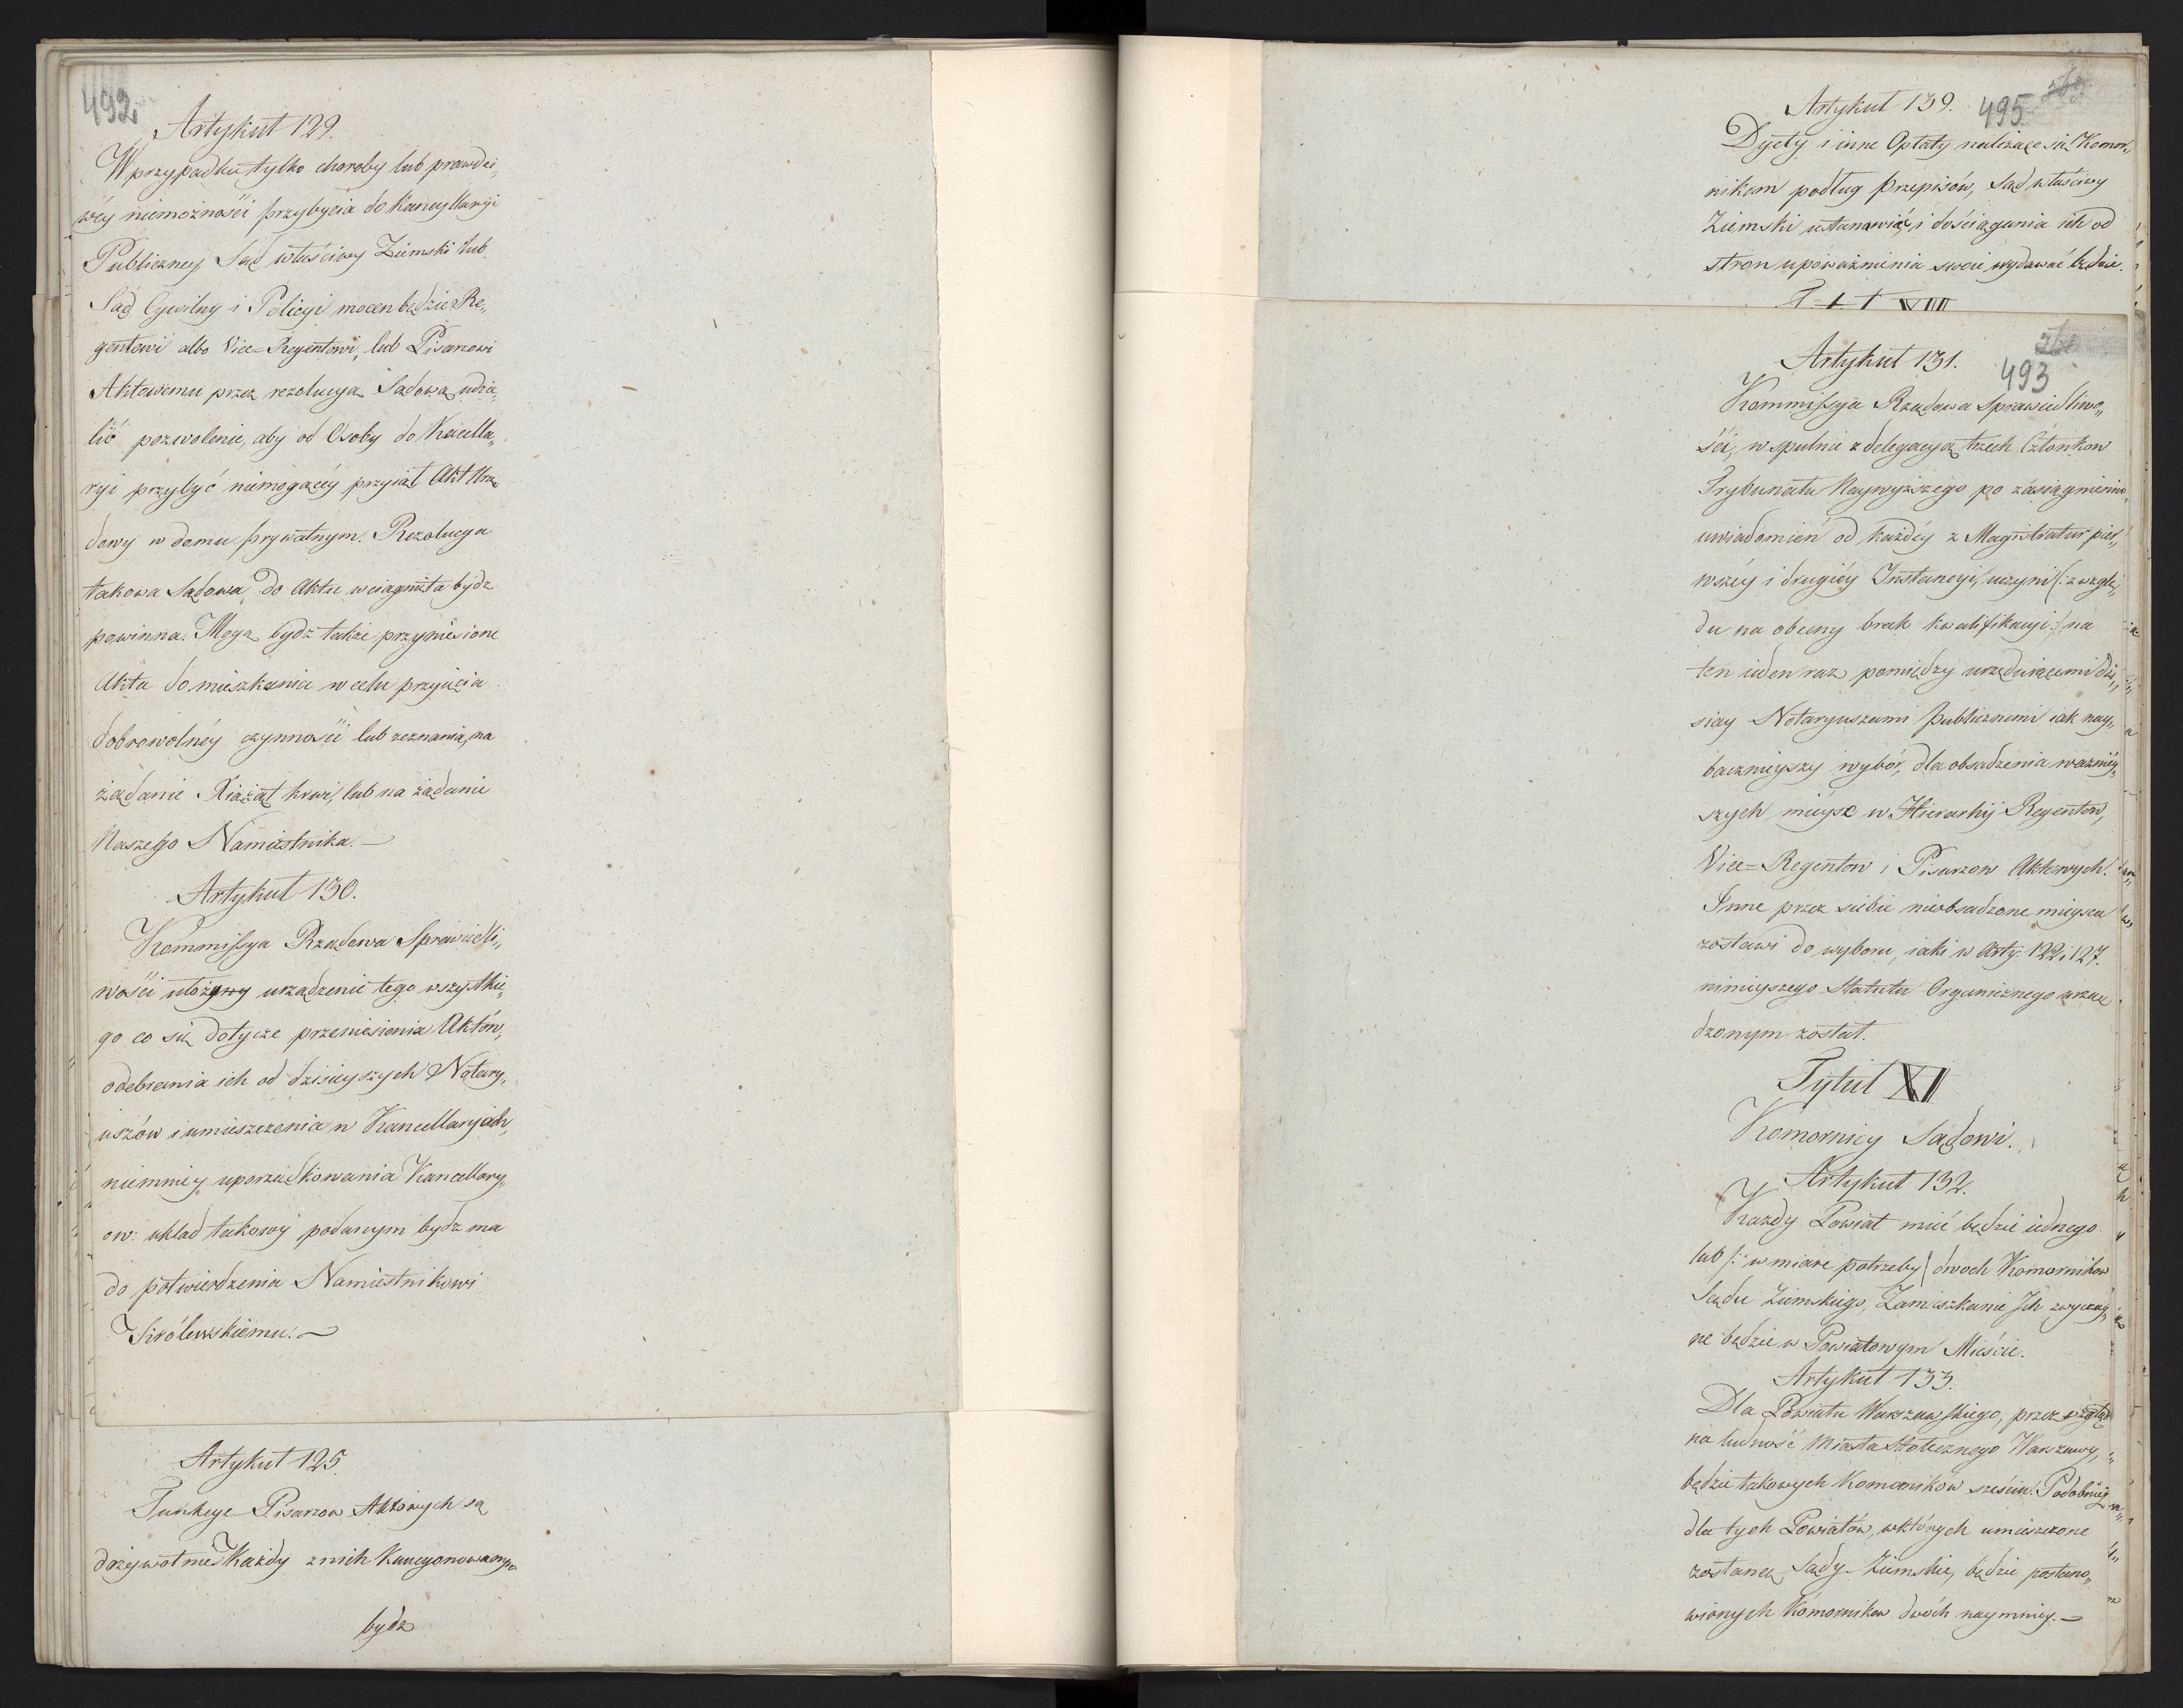 492.
Artykuł 129.
W przypadku tylko choroby lub prawdzi„
wéy niemożności przybycia do Kancyllaryi
Publiczney, Sąd właściwy Ziemski lub
Sąd Cywilny i Policyi mocen będzie Re„
gentowi albo Vice=Regentowi, lub Pisarzowi
Aktowemu przez rezolucyą Sądową udzie„
lić pozwolenie, aby od Osoby do Kancella„
ryi przybyć niemogącéy przyiął Akt Urzę
dowy w domu prywatnym. Rezolucya
takowa Sądowa do Aktu wciągnięta bydz
powinna. Mogą bydz także przyniesione
Akta do mieszkania w celu przyięcia
dobrowolnéy czynności lub zeznania, na
żądanie Xiążąt krwi, lub na żądanie
Naszego Namiestnika. —
Artykuł 130.
Kommissya Rządowa Sprawiedli„
wości ułoży urządzenie tego wszystkie„
go co się dotycze przeniesienia Aktów,
odebrania ich od dzisieyszych Notary„
uszów i umieszczenia w Kancellaryach,
niemniey uporządkowania Kancellary„
ow: układ takowy podanym bydz ma
do potwierdzenia Namiestnikowi
Królewskiemu. —
Artykuł 125.
Funkcye Pisarzow Aktowych są
dożywotnie Każdy z nich Kaucyonowanym
bydz
Artykuł 139. 495
Dyety i inne Opłaty należące się Komor„
nikom podług przepisów, Sąd właściwy
Ziemski ustanowić, i dościągania ich od
stron upoważnienia swoie wydawać będzie.
Artykuł 131.
493
Kommissya Rządowa Sprawiedliwo„
ści, wspulnie z delegacyą trzech Członkow
Trybunału Naywyższego po zasiągnieniu
uwiadomień od każdéy z Magistratur pier„
wszéy i drugiéy Instancyi, uczyni (: z wzglę„
du na obecny brak kwalifikacyi :) na
ten ieden raz pomiędzy urzęduiącemi dzi„
siay Notaryuszami publicznemi iak nay„
bacznieyszy wybór, dla obsadzenia ważniéy„
szych mieysc w Hierarhij Regentow,
Vice=Regentow i Pisarzow Aktowych.
Inne przez siebie nieobsadzone mieysca
zostawi do wyboru, iaki w Arty: 122 i 127.
ninieyszego Statutu Organicznego urzą
dzonym został.
Tytuł XI
Komornicy Sądowi.
Artykuł 132.
Każdy Powiat mieć będzie iednego
lub (: w miarę potrzeby) dwoch Komornikow
Sądu Ziemskiego, Zamieszkanie Ich zwyczay„
ne będzie w Powiatowym Mieście.
Artykuł 133.
Dla Powiatu Warszawskiego, przez wzgląd
na ludność Miasta Stołecznego Warszawy,
będzie takowych Komorników sześciu. Podobniéy
dla tych Powiatów, w których umieszczone
zostaną Sądy Ziemskie, będzie postano„
wionych Komornikow dwóch naymniey. —